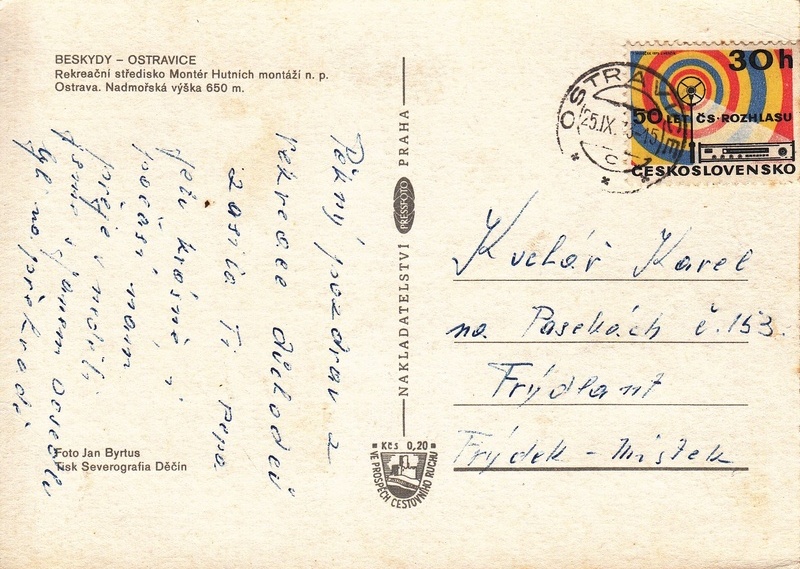 BESKYDY – OSTRAVICE
Rekreační středisko Montér Hutních montáží n. p.
Ostrava. Nadmořská výška 650 m.
Pěkný pozdrav z
rekreace důchodců
zasílá Ti Pepa.
Je krásné
počasí, nám
přeje v neděli
jsme s Janem
na přehradě
Foto Jan Byrtus
Tisk Severografia Děčín
NAKLADATELSTVÍ PRESSFOTO PRAHA
Kčs 0,20
VE PROSPĚCH CESTOVNÍHO RUCHU
30h
50 LET ČS. ROZHLASU
ČESKOSLOVENSKO
OSTRAVA
25.IX.
Kuchář Karel
na Pasekách č. 153.
Frýdlant
Frýdek – Místek